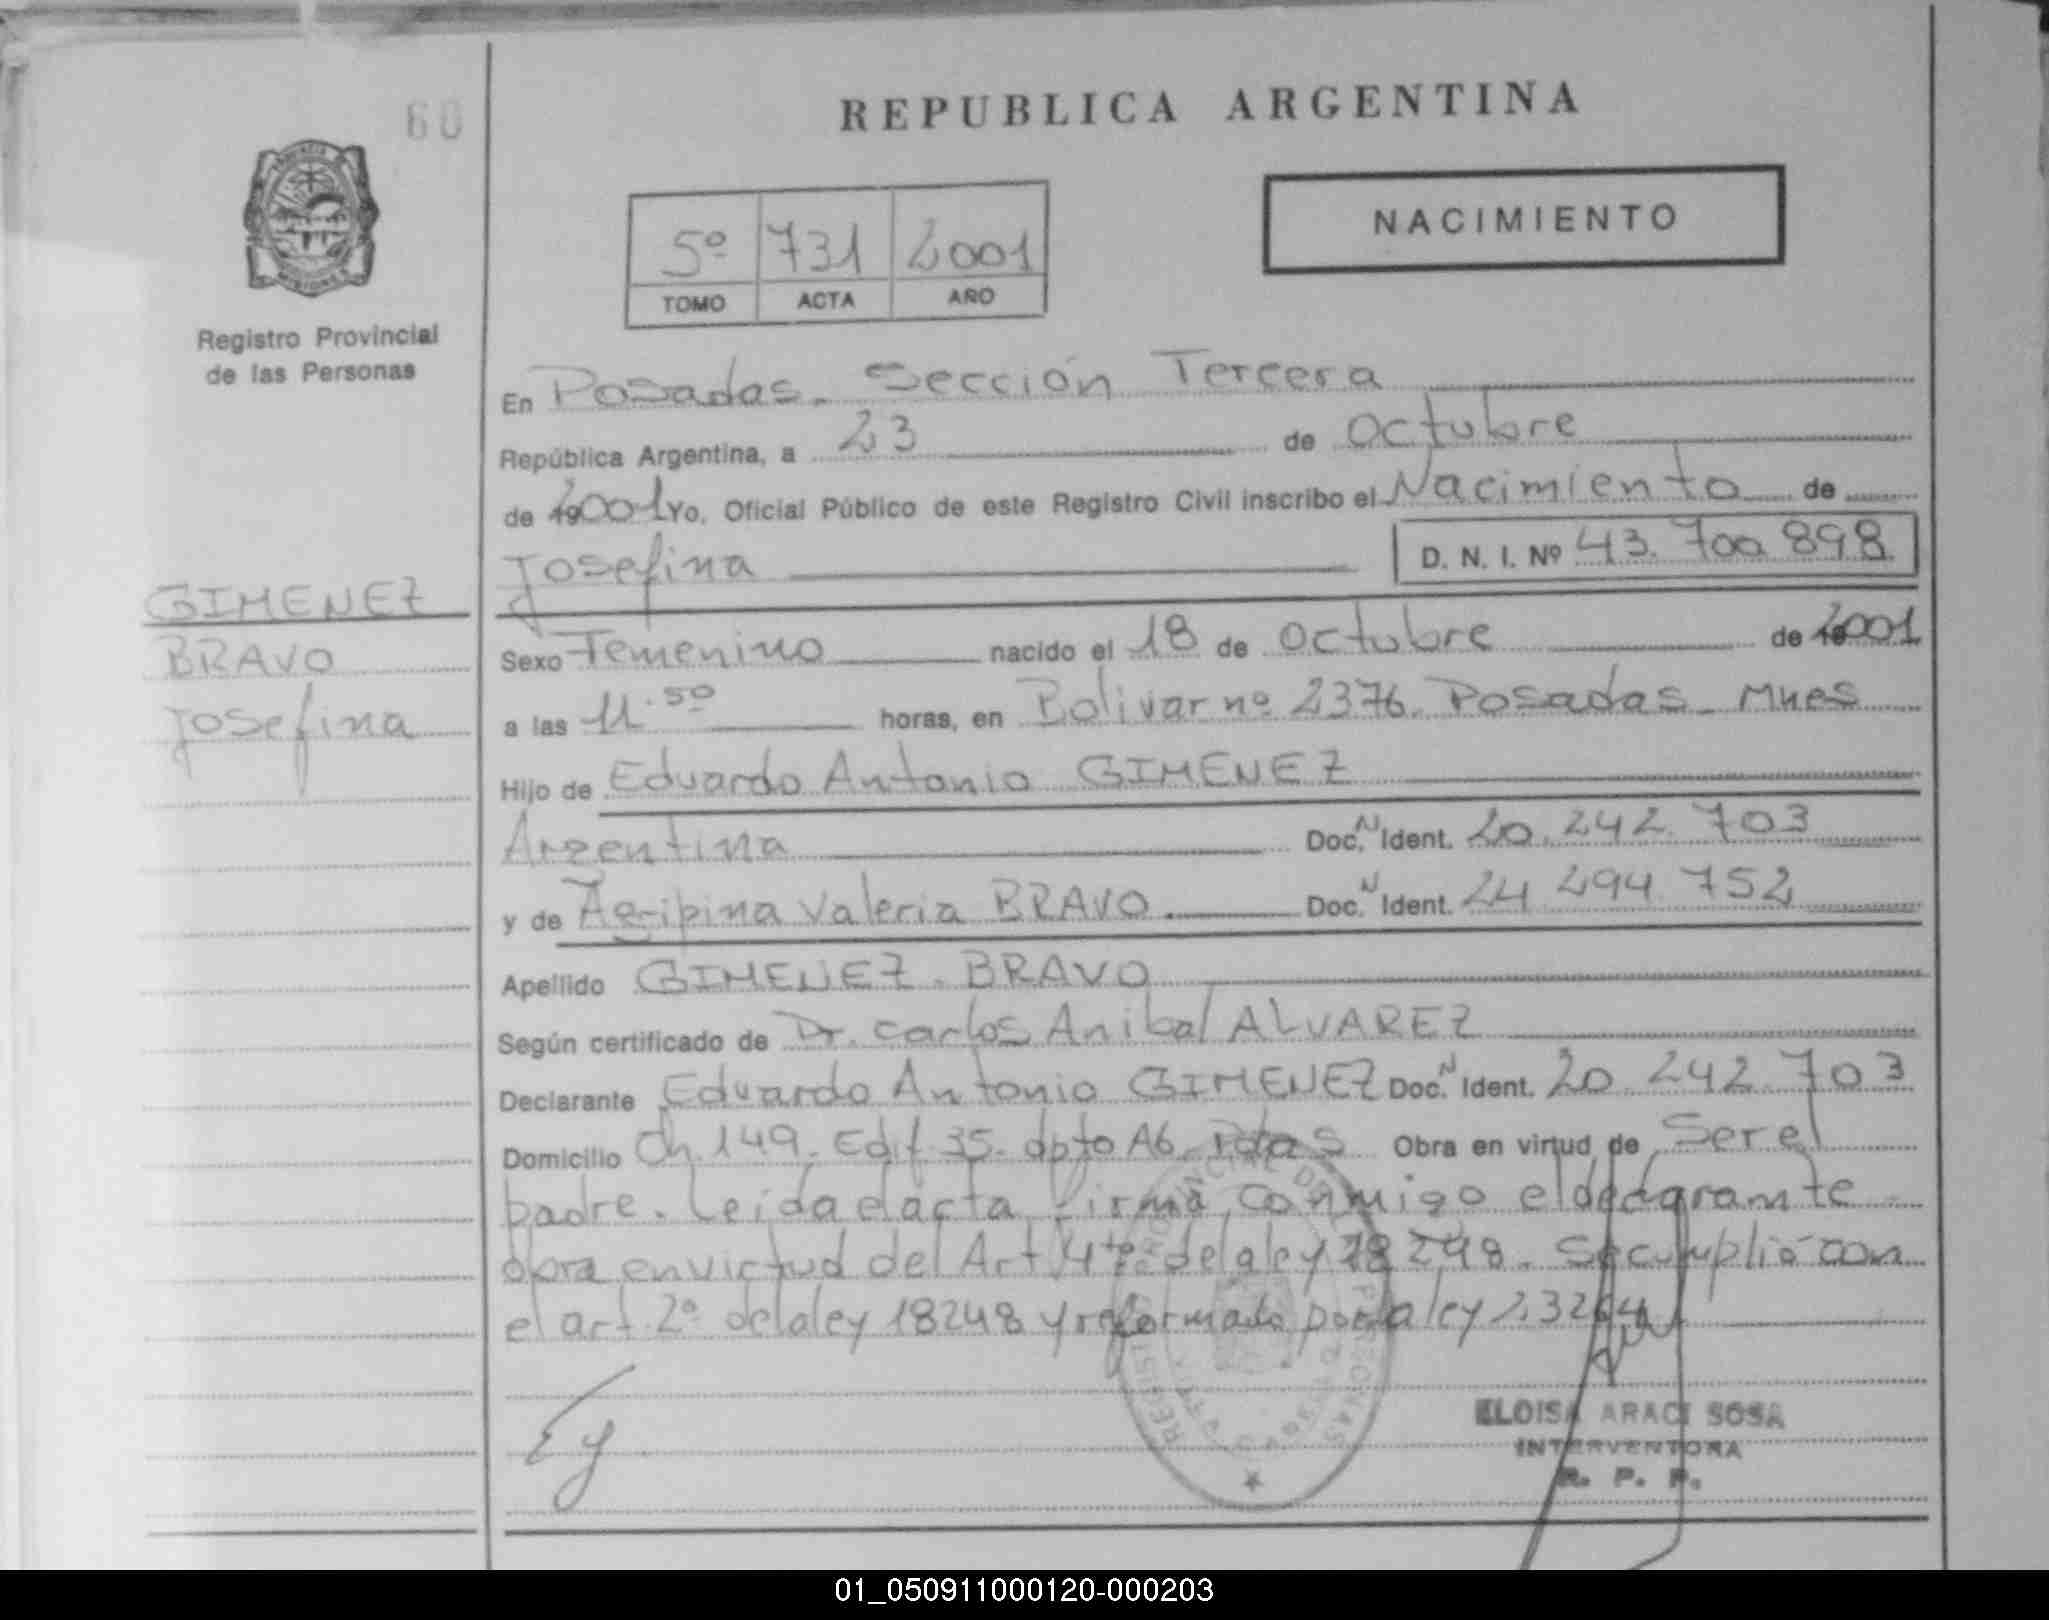 60
REPUBLICA ARGENTINA
NACIMIENTO
5º 731 2001
TOMO ACTA AÑO
Registro Provincial
de las Personas
En Posadas. Sección Tercera
República Argentina, a 23 de Octubre
de 2001 Yo, Oficial Público de este Registro Civil inscribo el Nacimiento de
Josefina D. N. I. Nº 43.700.898
GIMENEZ
BRAVO
Josefina
Sexo Femenino nacido el 18 de Octubre de 2001
a las 11.50 horas, en Bolivar nº 2376. Posadas. Mnes
Hijo de Eduardo Antonio GIMENEZ
Argentina Doc. N Ident. 20.242.703
y de Agripina Valeria BRAVO. Doc. N Ident. 24 294 752
Apellido GIMENEZ. BRAVO
Según certificado de Dr. Carlos Anibal ALVAREZ
Declarante Eduardo Antonio GIMENEZ Doc. N Ident. 20.242.703
Domicilio Ch.149. Edif.35. dpto A6. Pdas Obra en virtud de Ser el
padre. Leida el acta firma conmigo el
obra en virtud del Art. 4to. de la ley 18248. Se cumplió con
el art. 2º de la ley 18248 y reformado por la ley 23264
ELOISA ARACI SOSA
INTERVENTORA
R. P. P.
01_050911000120-000203